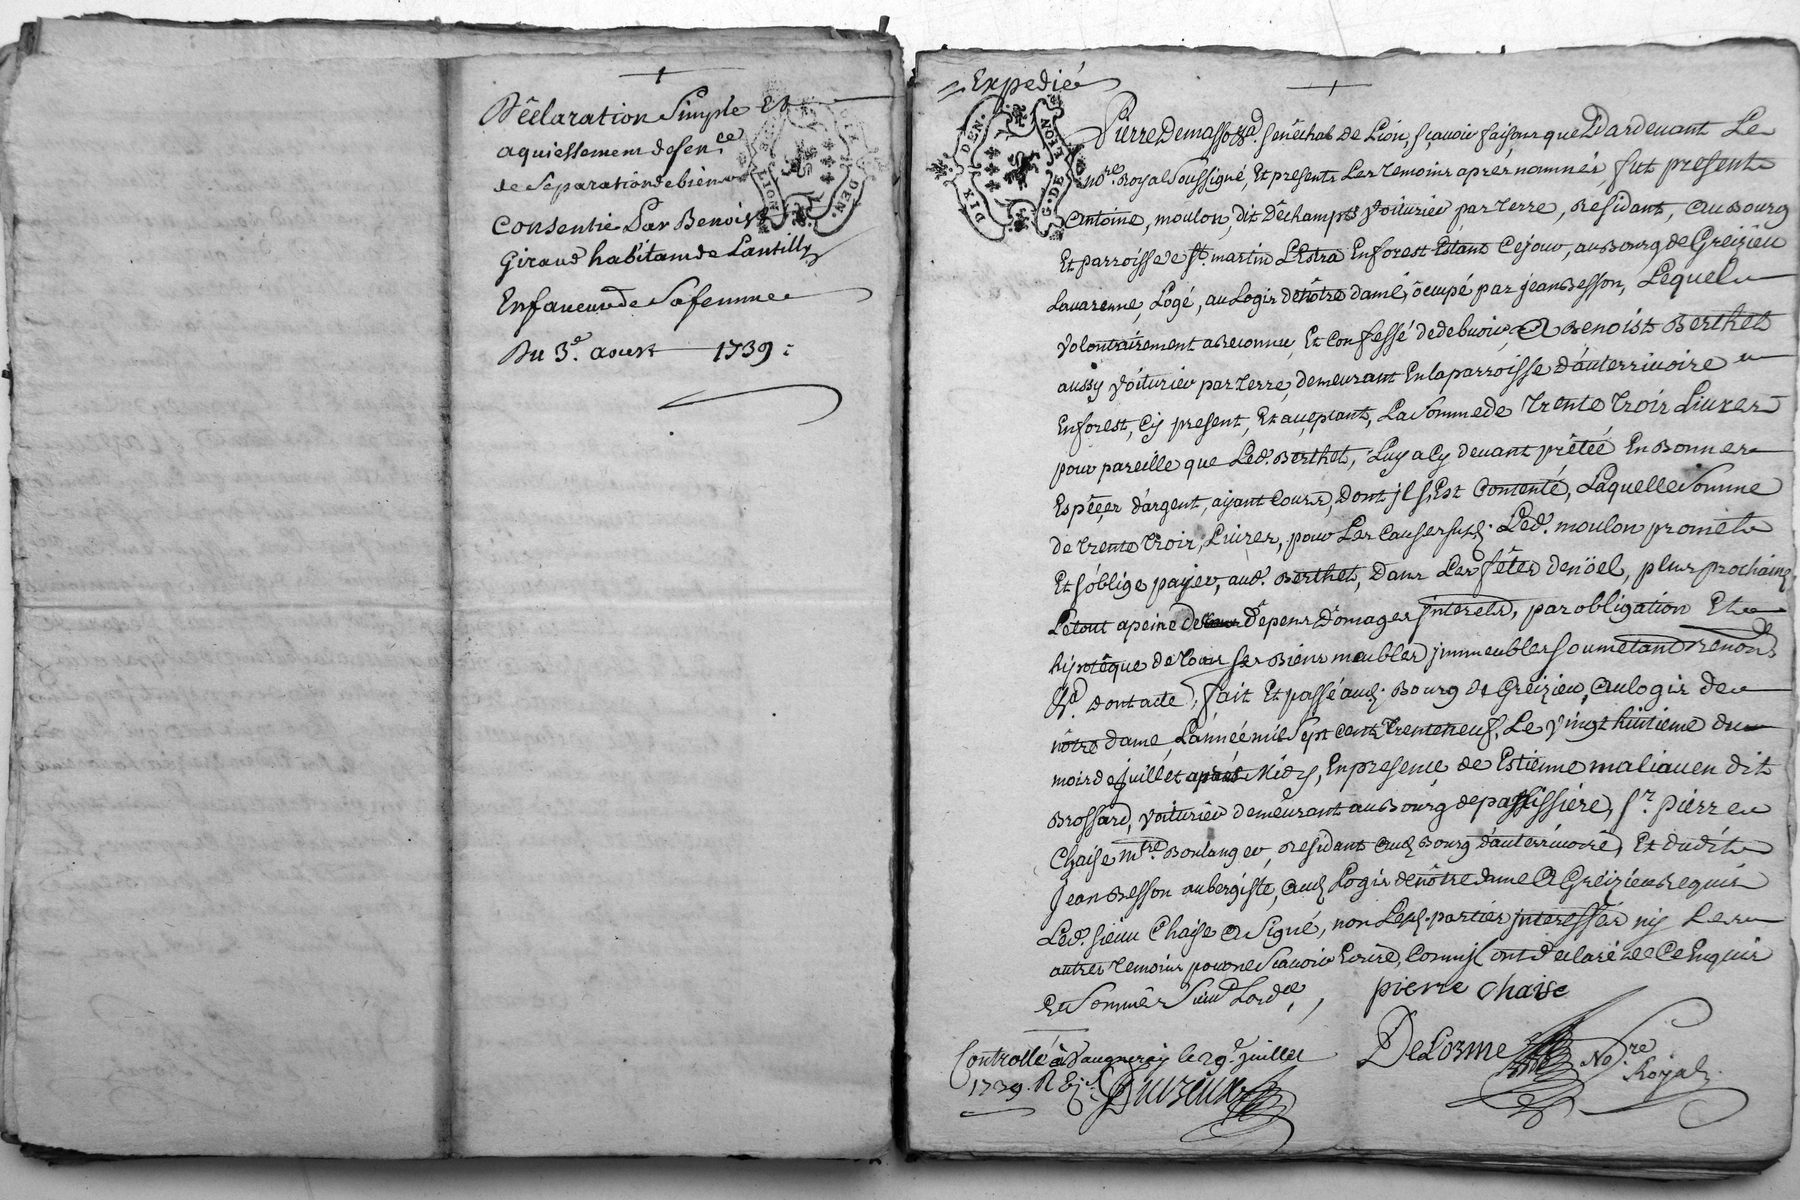 Déclaration Simple Et
aquiessement de sence
de Separation de biens
Consentie Par Benoist
Giraud habitant de Lantilly
En faveur de Sa femme
Du 3e. aoust 1739
LION
DEN.
Expedié
DIX DEN.
G. DE LION
Pierre Demasso sgr. Senéchal de Lion, sçavoir faisons que Pardevant Le
nore. Royal Soussigné, Et presents Les temoins apres nommés, fut present
Antoine, moulon, dit Déchamps voiturier par terre, Residant, au Bourg
Et parroisse de st. martin L'Estra En forest Estant Cejour, au Bourg de Greizieu
Lavarenne, Logé, au Logis de nôtre dame, ôcupé par jean Besson, Lequel
volontairement a Reconnu, Et Confessé dedebvoir, A Benoist Berthet
aussy voiturier par terre, demeurant En la parroisse d'auterrivoire
En forest, Cy present, Et aceptant, La Somme de trente trois Livres
pour pareille que Led. Berthet, Luy a Cy devant prêtée En Bonnes
Espéces d'argent, ayant Cours, dont jl s'Est Contenté, Laquelle Somme
de trente trois, Livres, pour Les Causes susd. Led. moulon promet
Et s'oblige payer, aud. Berthet, Dans Les fêtes de nöel, plus prochaines
Le tout a peine de Dépens Domages jnterets, par obligation Et
hipotêque de tous ses Biens meubles jmmeubles soumetant Renond
&a. Dont acte, fait Et passé aud. Bourg de Greizieu, au logis de
nôtre dame, L'année mil Sept Cents trente neuf, Le vingt huitieme du
mois de juillet aprés Midy, En presence de Estienne maliaven dit
Brossard, voiturier demeurant au Bourg de passissiére, sr. pierre
Chaise mtre. Boulanger, Residant aud Bourg d'auterrivoire, Et dudit
Jean Besson aubergiste, aud Logis de nôtre dame A Greizieu Requis
Led. sieur Chaise A Signé, non Lesd. parties jnteressées ny Les
autres temoins pour ne Scavoir Ecrire, Comm'jl ont declaré de Ce Enquis
Et Sommés Suivt Lordce.
pierre chaise
DeLorme Nore. Royal
Controllé à Vaugneray le 29e. juillet
1739. R